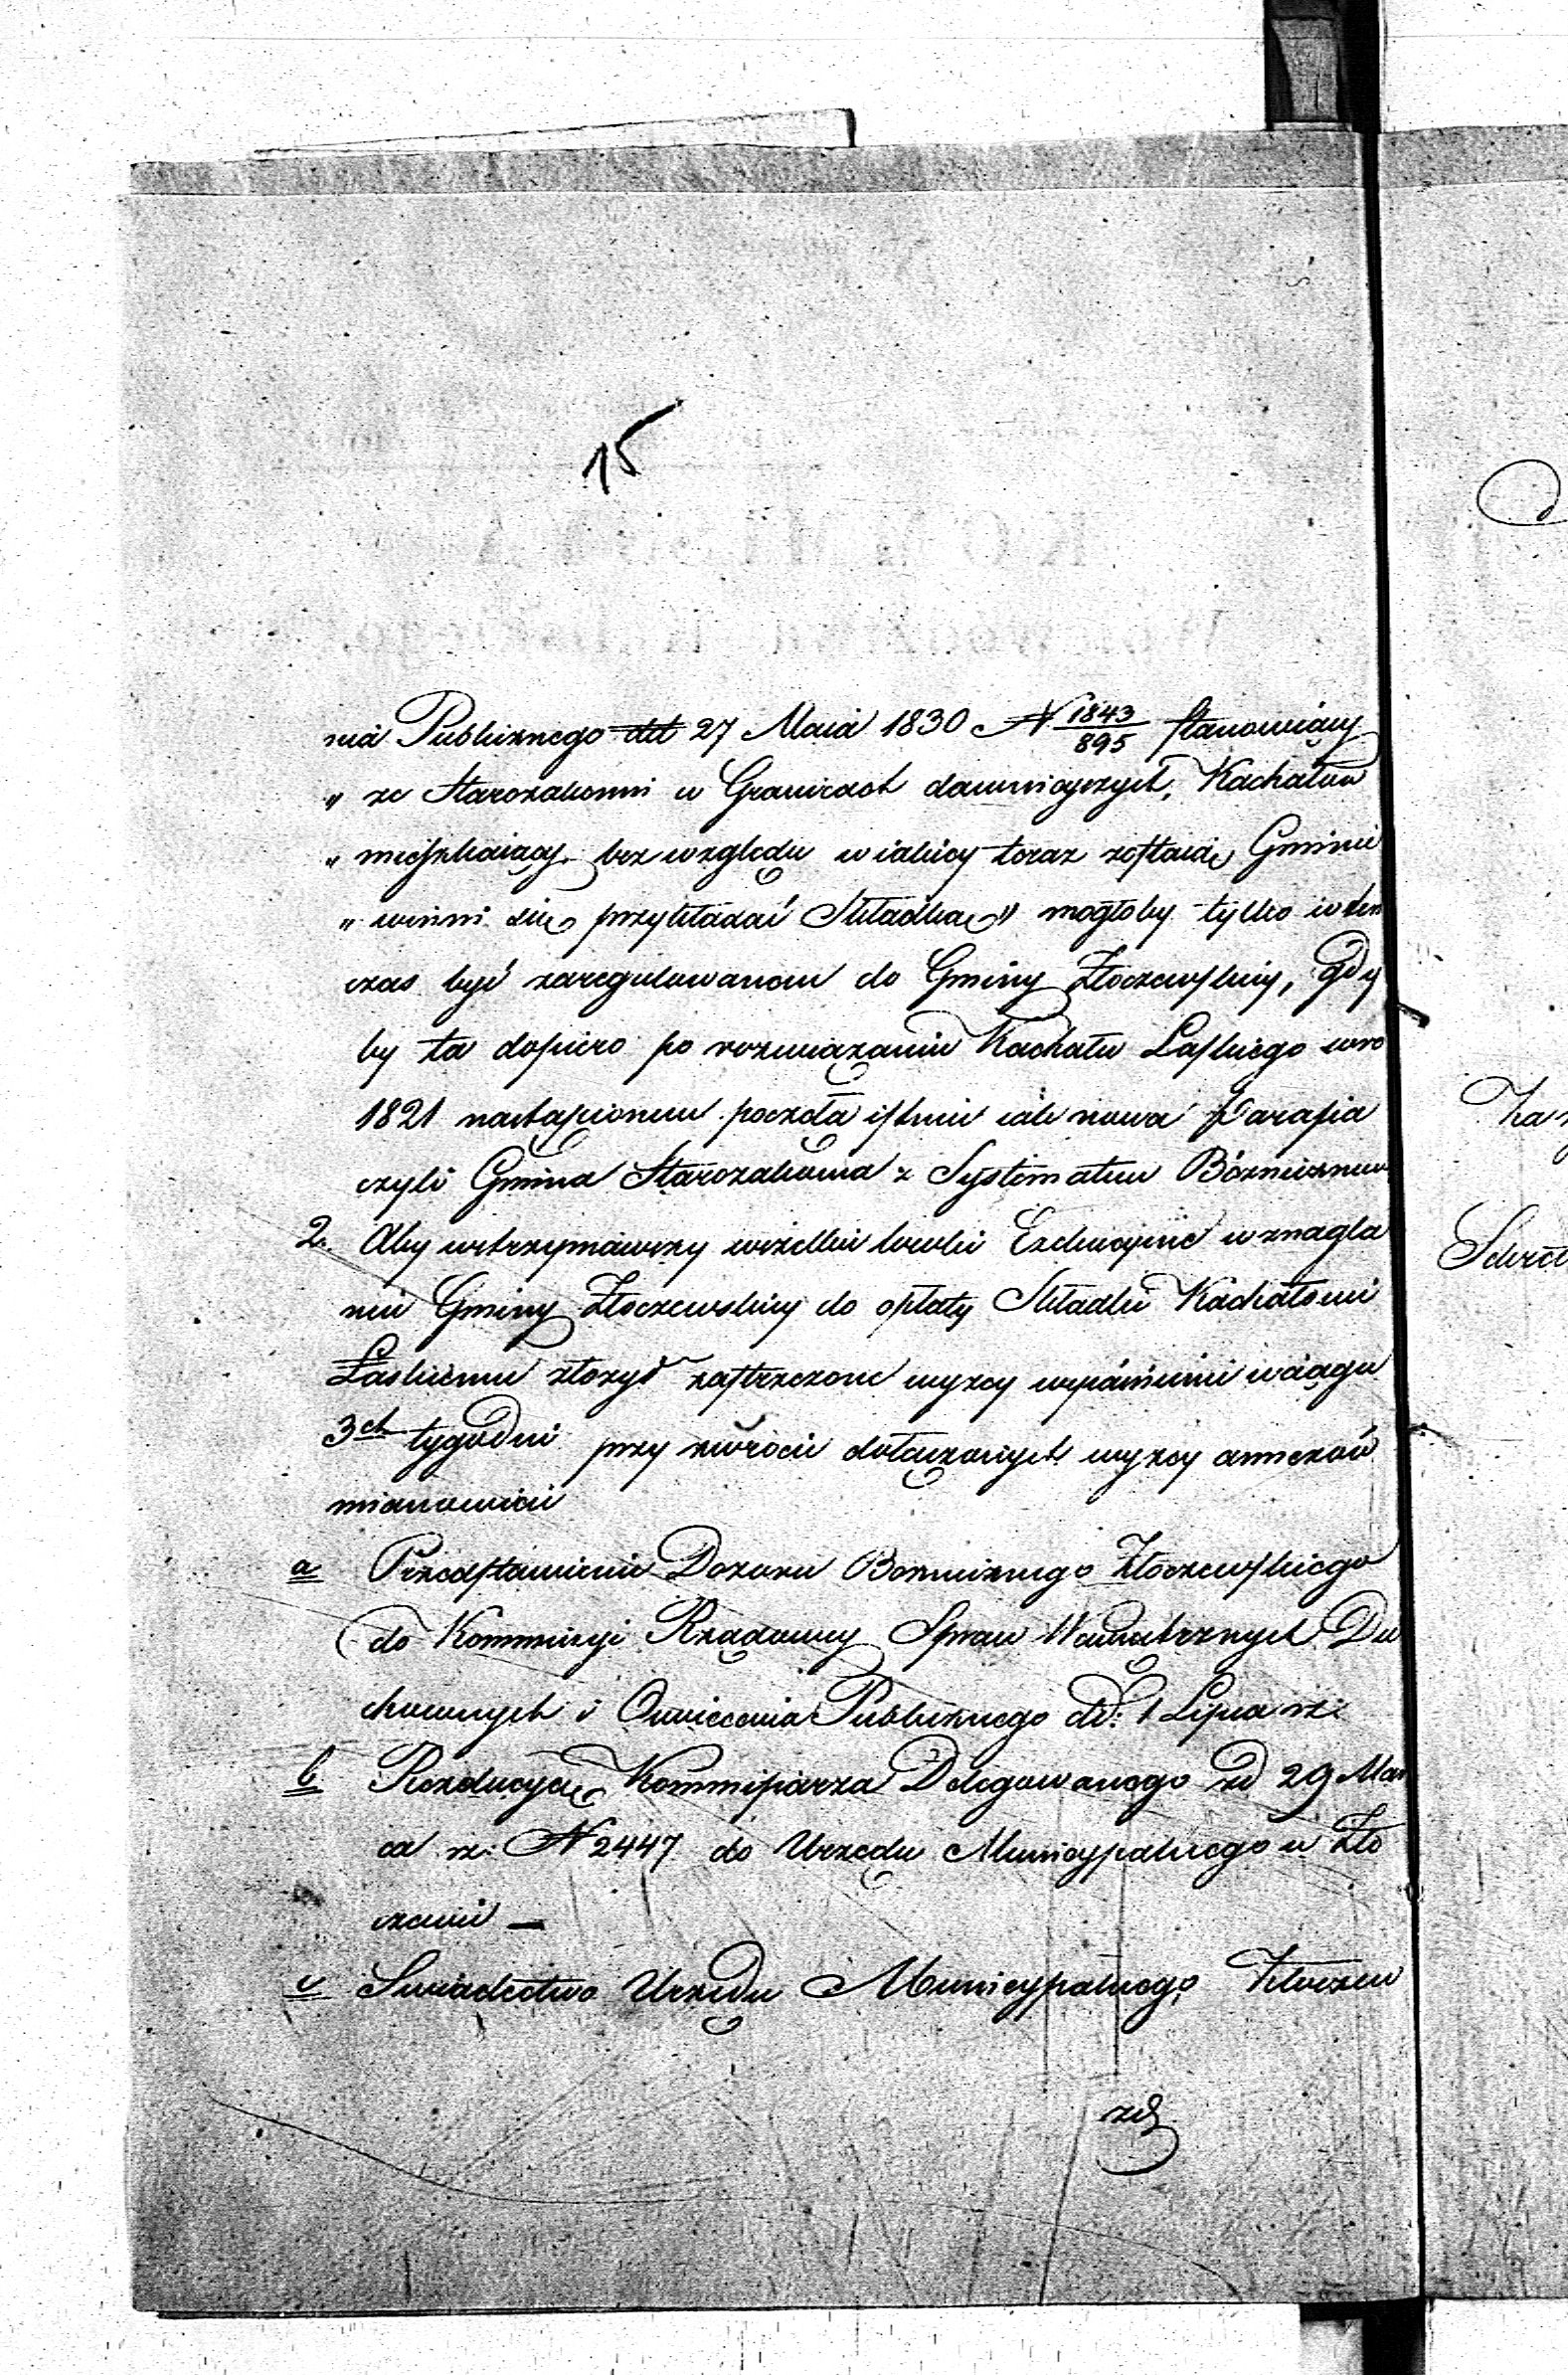 15
nia Publicznego dtt 27 Maia 1830 N 1843/895 stanowiący
„ ze Starozakonni w Granicach dawnieyszych Kachałów
„ mieszkaiący bez względu w iakiey teraz zostaią Gminie
„ winni się przykładać Składką" mogłoby tylko wten
czas być zaregulowanem do Gminy Złoczewskiey, gdy
by ta dopiero po rozwiązaniu Kachału Łaskiego wro
1821 nastąpionem poczęła istnieć iako nowa Parafia
czyli Gmina Starozakonna z Systematem Bóżnicznem
2. Aby wstrzymawszy wszelkie kroki Exekucyine w znagla
niu Gminy Złoczewskiey do opłaty Składki Kachałowi
Łaskiemu złożyć zastrzeżone wyżey wyiaśnienie wciągu
3ch tygodni przy zwrocie dołączonych wyżey annexów
mianowicie
a Przedstawienie Dozoru Boznicznego Złoczewskiego
do Kommissyi Rządowey Spraw Wewnętrznych Du
chownych i Oswiecenia Publicznego dd: 1 Lipca rz:
b Rezolucyą Kommissarza Delegowanego zd 29 Mar
ca rz: N 2447 do Urzędu Municypalnego w Zło
czewie —
c Swiadectwo Urzędu Municypalnego Złoczew